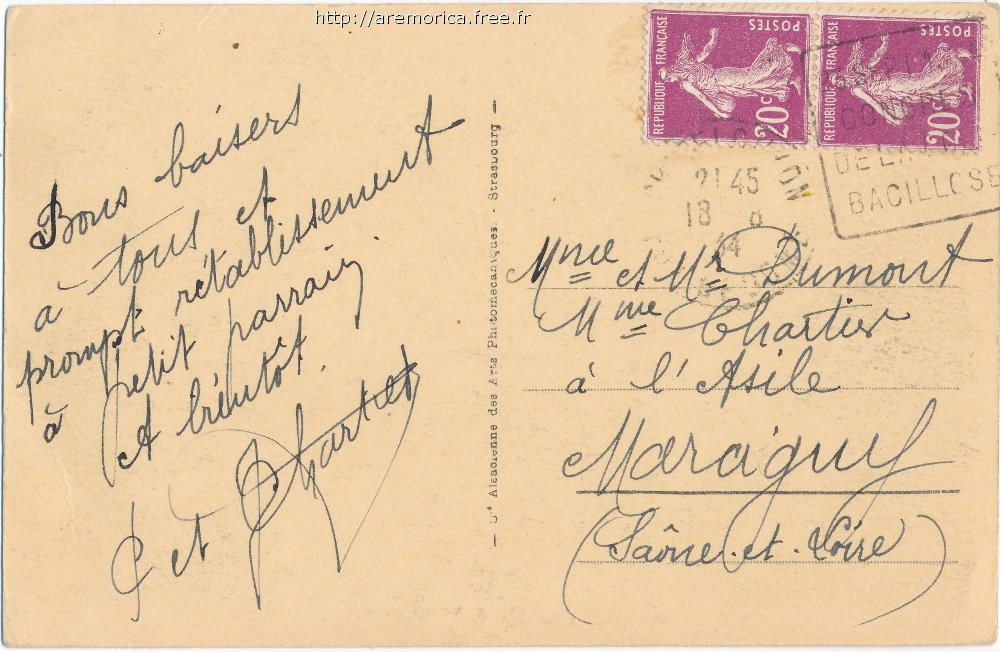 http://aremorica.free.fr
Bons baisers
à tous et
prompt rétablissement
à petit parrain,
A bientôt.
et
Cie Alsacienne des Arts Photomécaniques. - Strasbourg -
POSTES
RÉPUBLIQUE FRANÇAISE
20c
POSTES
RÉPUBLIQUE FRANÇAISE
20c
21 45
18
DE LA
BACILLOSE
Mme et Mr Dumont
Mme Chartier
à l'Asile
Maraiguy
(Saône-et-Loire)